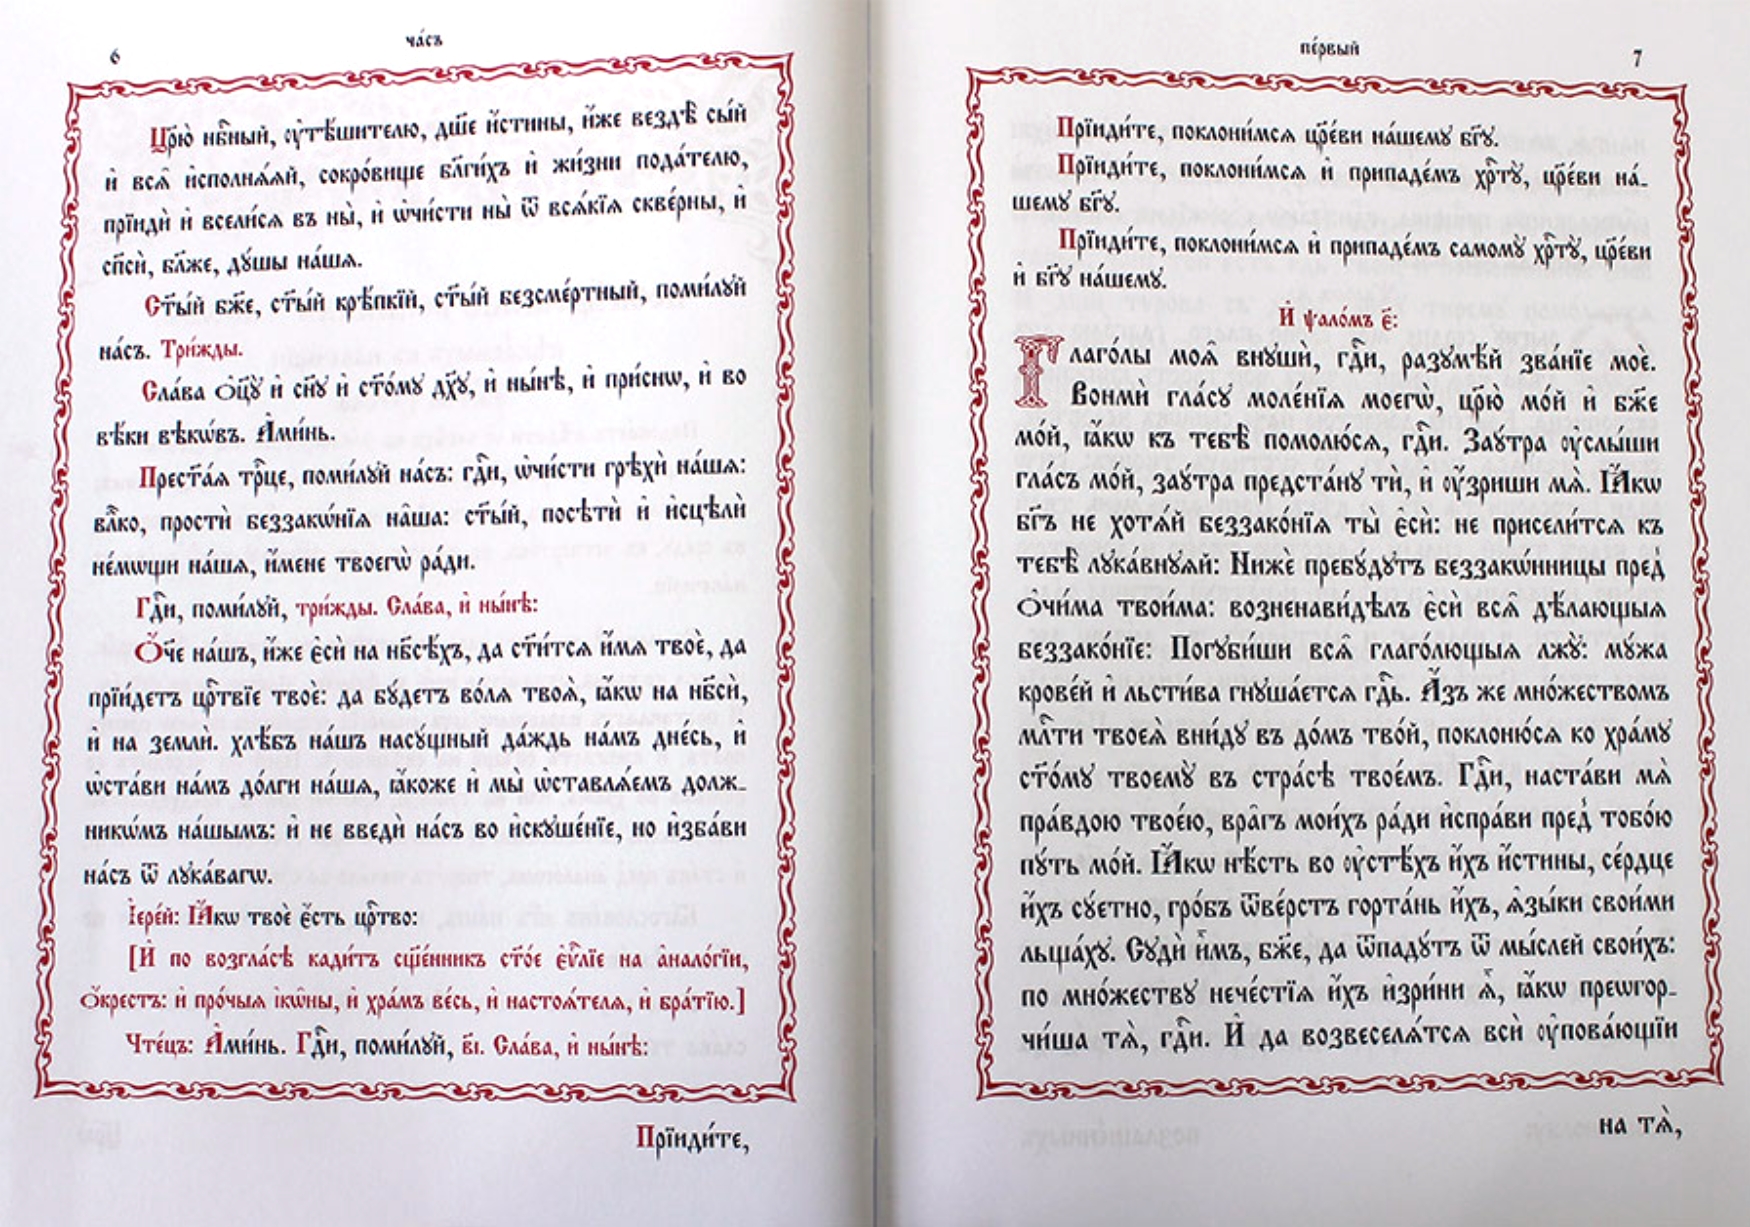 6
ча́съ
Цр҃ю̀ нбⷭ҇ный, ᲂу҆тѣ́шителю, дш҃е и҆́стины, и҆́же вездѣ̀ сы́й
и҆ всѧ̑ и҆сполнѧ́ѧй, сокро́вище бл҃ги́хъ и҆ жи́зни пода́телю,
прїидѝ и҆ всели́сѧ въ ны̀, и҆ ѡ҆чи́сти ны̀ ѿ всѧ́кїѧ скве́рны, и҆
сп҃сѝ, бл҃же, дꙋ́шы на́шѧ.
Ст҃ы́й бж҃е, ст҃ы́й крѣ́пкїй, ст҃ы́й безсме́ртный, поми́лꙋй
на́съ. Три́жды.
Сла́ва ѻ҆ц҃ꙋ̀ и҆ сн҃ꙋ и҆ ст҃о́мꙋ дх҃ꙋ, и҆ ны́нѣ, и҆ при́снѡ, и҆ во
вѣ́ки вѣкѡ́въ. А҆ми́нь.
Прест҃а́ѧ трⷪ҇це, поми́лꙋй на́съ: гдⷭ҇и, ѡ҆чи́сти грѣхѝ на́шѧ:
влⷣко, простѝ беззакѡ́нїѧ на̑ша: ст҃ы́й, посѣтѝ и҆ и҆сцѣлѝ
не́мѡщи на́шѧ, и҆́мене твоегѡ̀ ра́ди.
Гдⷭ҇и, поми́лꙋй, три́жды. Сла́ва, и҆ ны́нѣ:
Ѻ҆́ч҃е на́шъ, и҆́же є҆сѝ на нб҃сѣ́хъ, да ст҃и́тсѧ и҆́мѧ твоѐ, да
прїи́детъ црⷭ҇твїе твоѐ: да бꙋ́детъ во́лѧ твоѧ̀, ꙗ҆́кѡ на нб҃сѝ,
и҆ на землѝ. хлѣ́бъ на́шъ насꙋ́щный да́ждь на́мъ дне́сь, и҆
ѡ҆ста́ви на́мъ до́лги на́шѧ, ꙗ҆́коже и҆ мы̀ ѡ҆ставлѧ́емъ долж_
никѡ́мъ на́шымъ: и҆ не введѝ на́съ во и҆скꙋше́нїе, но и҆зба́ви
на́съ ѿ лꙋка́вагѡ.
І҆ере́й: Ꙗ҆́кѡ твоѐ є҆́сть црⷭ҇тво:
[И҆ по возгла́сѣ кади́тъ сщ҃е́нникъ ст҃о́е є҆ѵⷢ҇лїе на а҆нало́гїи,
ѻ҆́крестъ: и҆ про́чыѧ і҆кѡ́ны, и҆ хра́мъ ве́сь, и҆ настоѧ́телѧ, и҆ бра́тїю.]
Чте́цъ: А҆ми́нь. Гдⷭ҇и, поми́лꙋй, в҃і. Сла́ва, и҆ ны́нѣ:
Прїиди́те,
пе́рвый
7
Прїиди́те, поклони́мсѧ цр҃е́ви на́шемꙋ бг҃ꙋ.
Прїиди́те, поклони́мсѧ и҆ припаде́мъ хрⷭ҇тꙋ̀, цр҃е́ви на́_
шемꙋ бг҃ꙋ.
Прїиди́те, поклони́мсѧ и҆ припаде́мъ самомꙋ̀ хрⷭ҇тꙋ̀, цр҃е́ви
и҆ бг҃ꙋ на́шемꙋ.
И҆ ѱало́мъ є҃:
Глаго́лы моѧ̑ внꙋшѝ, гдⷭ҇и, разꙋмѣ́й зва́нїе моѐ.
Вонмѝ гла́сꙋ моле́нїѧ моегѡ̀, цр҃ю̀ мо́й и҆ бж҃е
мо́й, ꙗ҆́кѡ къ тебѣ̀ помолю́сѧ, гдⷭ҇и. Заꙋ́тра ᲂу҆слы́ши
гла́съ мо́й, заꙋ́тра предста́нꙋ тѝ, и҆ ᲂу҆́зриши мѧ̀. Ꙗ҆́кѡ
бг҃ъ не хотѧ́й беззако́нїѧ ты̀ є҆сѝ: не присели́тсѧ къ
тебѣ̀ лꙋка́внꙋѧй: Нижѐ пребꙋ́дꙋтъ беззакѡ́нницы пред̾
ѻ҆чи́ма твои́ма: возненави́дѣлъ є҆сѝ всѧ̑ дѣ́лающыѧ
беззако́нїе: Погꙋби́ши всѧ̑ глаго́лющыѧ лжꙋ̀: мꙋ́жа
крове́й и҆ льсти́ва гнꙋша́етсѧ гдⷭ҇ь. А҆́зъ же мно́жествомъ
млⷭ҇ти твоеѧ̀ вни́дꙋ въ до́мъ тво́й, поклоню́сѧ ко хра́мꙋ
ст҃о́мꙋ твоемꙋ̀ въ стра́сѣ твое́мъ. Гдⷭ҇и, наста́ви мѧ̀
пра́вдою твое́ю, вра̑гъ мои́хъ ра́ди и҆спра́ви пред̾ тобо́ю
пꙋ́ть мо́й. Ꙗ҆́кѡ нѣ́сть во ᲂу҆стѣ́хъ и҆́хъ и҆́стины, се́рдце
и҆́хъ сꙋ́етно, гро́бъ ѿве́рстъ горта́нь и҆́хъ, ѧ҆зы́ки свои́ми
льща́хꙋ. Сꙋдѝ и҆̀мъ, бж҃е, да ѿпадꙋ́тъ ѿ мы́слей свои́хъ:
по мно́жествꙋ нече́стїѧ и҆́хъ и҆зри́ни ѧ҆̀, ꙗ҆́кѡ преѡгор_
чи́ша тѧ̀, гдⷭ҇и. И҆ да возвеселѧ́тсѧ всѝ ᲂу҆пова́ющїи
на тѧ̀,